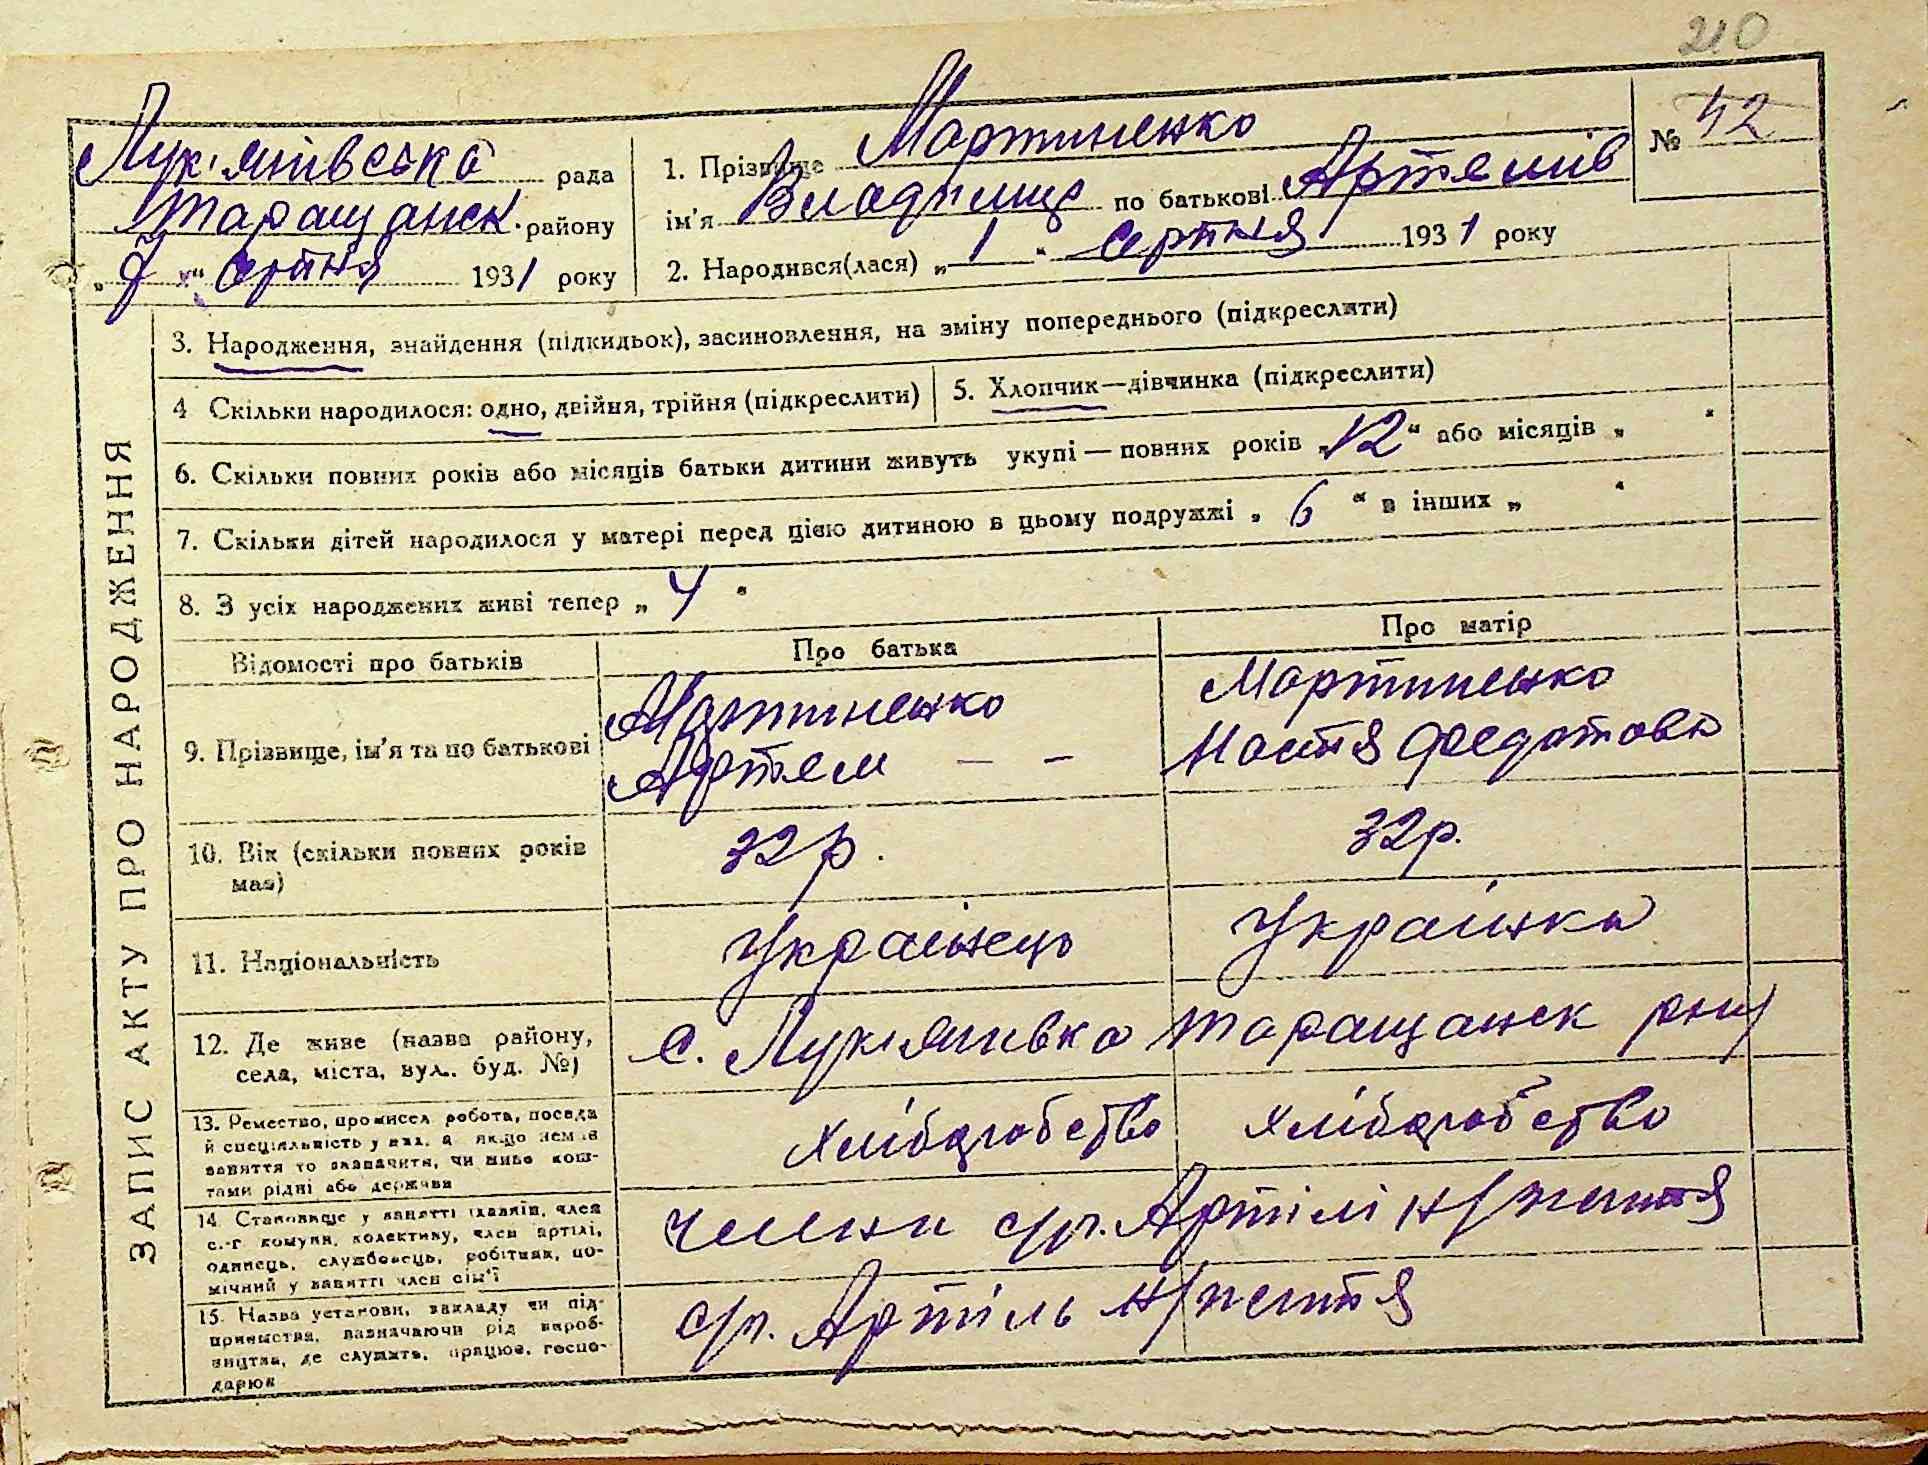 210
Лук'янівська рада
Таращанськ. району
„7“ серпня 1931 року
1. Прізвище Мартиненко
ім'я Владімир по батькові Артемів
№ 42
2. Народився(лася) „1“ серпня 1931 року
ЗАПИС АКТУ ПРО НАРОДЖЕННЯ
3. Народження, знайдення (підкидьок), засиновлення, на зміну попереднього (підкреслити)
4 Скільки народилося: одно, двійня, трійня (підкреслити)
5. Хлопчик—дівчинка (підкреслити)
6. Скільки повних років або місяців батьки дитини живуть укупі — повних років „12“ або місяців „ “
7. Скільки дітей народилося у матері перед цією дитиною в цьому подружжі „ 6 “ в інших „ “
8. З усіх народжених живі тепер „ 4 “
Відомості про батьків
Про батька
Про матір
9. Прізвище, ім'я та по батькові
Мартиненко
Артем — —
Мартиненко
Настя Федотовн
10. Вік (скільки повних років
має)
32р.
32р.
11. Національність
Українець
Українка
12. Де живе (назва району,
села, міста, вул., буд. №)
с. Лук'янивка Таращанськ рну
13. Ремество, промисел робота, посада
й спеціяльність у них, а якщо немає
заняття то зазначити, чи живе кош-
тами рідні або держави
хліборобство
хліборобство
14. Становище у занятті
с.-г комуни, колективу, член артілі,
одинець, службовець, робітник, по-
мічний у занятті член сім'ї
члени с/г. Артілі н/життя
15. Назва установи, закладу чи під-
приємства, зазначаючи рід вироб-
ництва, де служить, працює, госпо-
дарює
с/г. Артіль н/життя